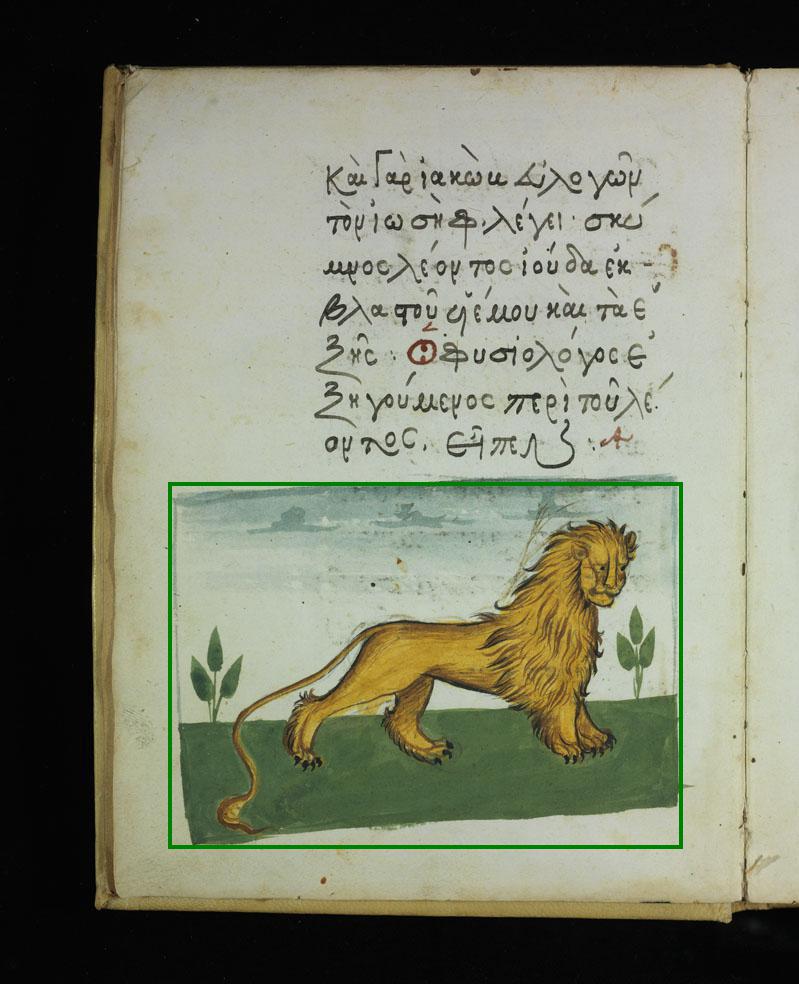 Καὶ Γὰρ ἰακὼβ εὐλογῶν
τὸν ἰωσὴφ. λέγει σκύ
μνος λέοντος ἰούδα ἐκ
βλαστοῦ υἱέ μου καὶ τὰ ἑ
ξῆς : Ὁ φυσιολόγος ἐ
ξηγούμενος περὶ τοῦ λέ
οντος.